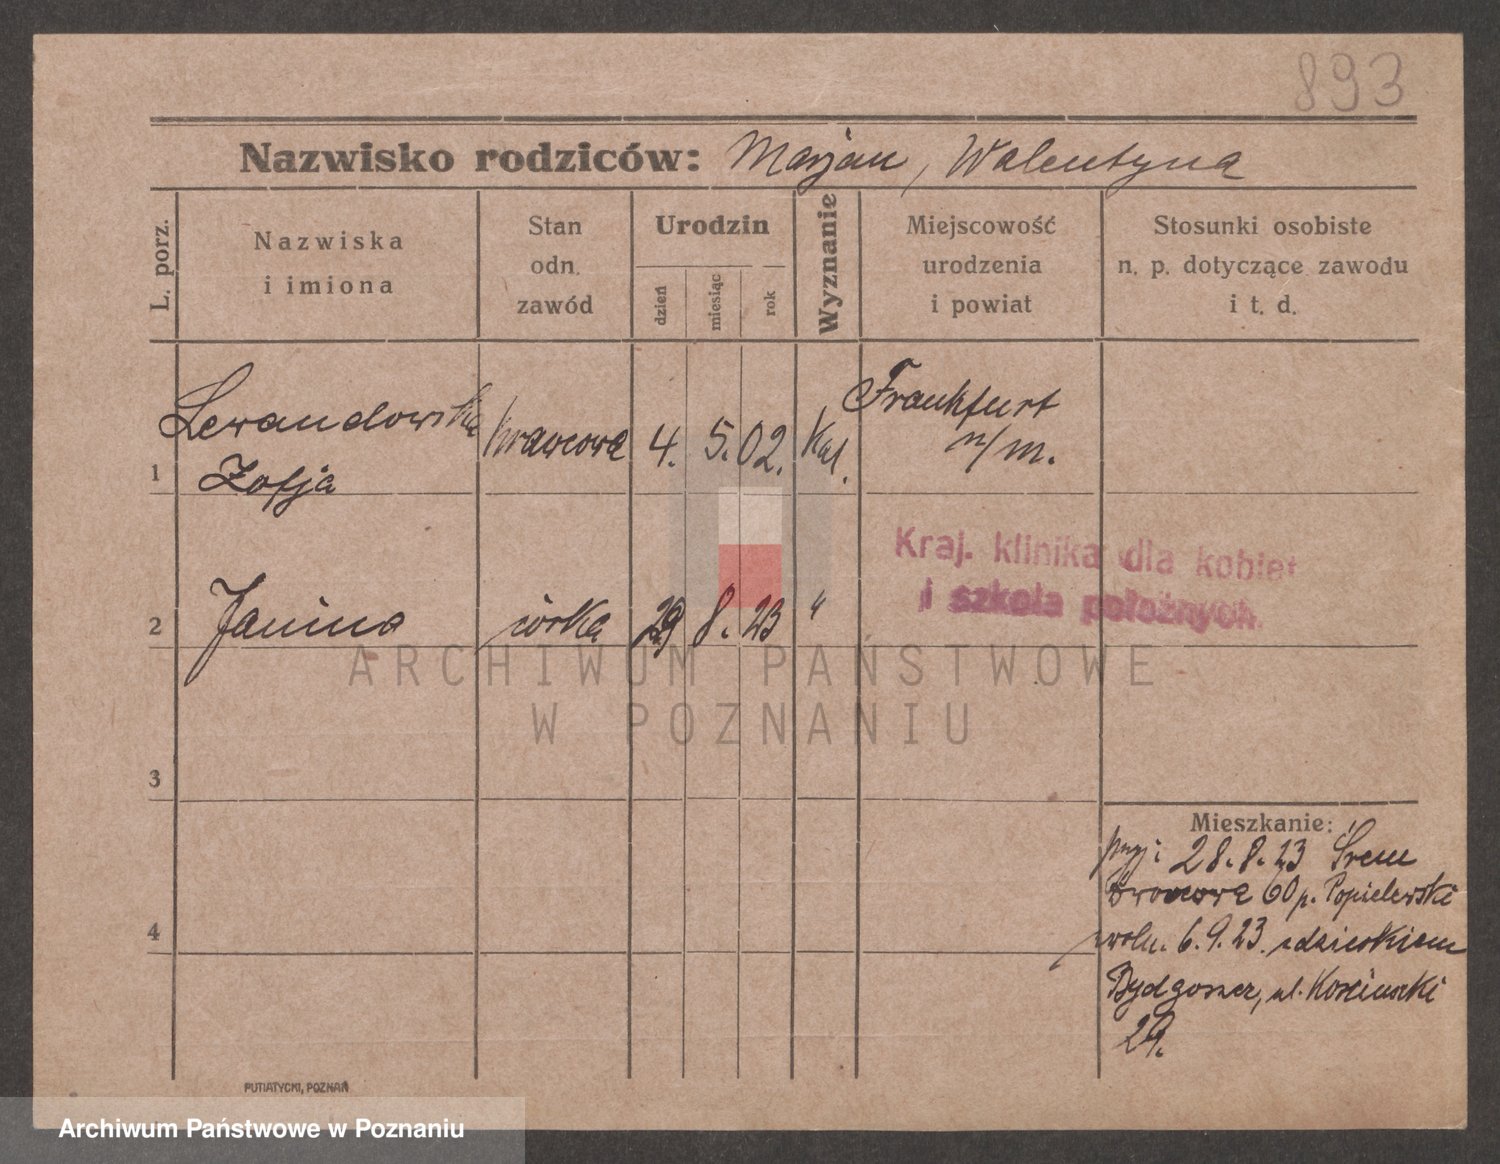 893
Nazwisko rodziców: Marjan, Walentyna
L. porz.
Nazwiska
i imiona
Stan
odn.
zawód
Urodzin
dzień
miesiąc
rok
Wyznanie
Miejscowość
urodzenia
i powiat
Stosunki osobiste
n. p. dotyczące zawodu
i t. d.
1
Lewandowska
Zofja
krawcowa
4. 5. 02.
Kat.
Frankfurt
n/m.
Kraj. klinika dla kobiet
i szkoła położnych.
2
Janina
córka
29 8. 23
"
ARCHIWUM PAŃSTWOWE
W POZNANIU
3
4
Mieszkanie:
przyj: 28.8.23 Śrem
60 p. Popielewski
zwoln. 6.9.23. z dzieckiem
Bydgoszcz, ul. Kościuszki
29.
PUTIATYCKI, POZNAŃ
Archiwum Państwowe w Poznaniu